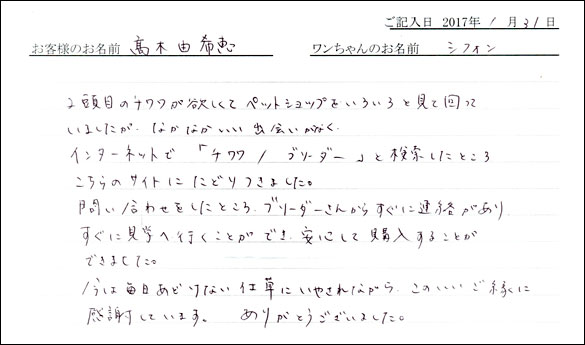 ご記入日 2017年 1月 31日
お客様のお名前 髙木由希恵 ワンちゃんのお名前 シフォン
2頭目のチワワが欲しくてペットショップをいろいろと見て回って
いましたが、なかなかいい出会いがなく、
インターネットで「チワワ / ブリーダー」と検索したところ
こちらのサイトにたどりつきました。
問い合わせをしたところ、ブリーダーさんからすぐに連絡があり
すぐに見学へ行くことができ、安心して購入することが
できました。
今は毎日あどけない仕草にいやされながら、このいいご縁に
感謝しています。 ありがとうございました。